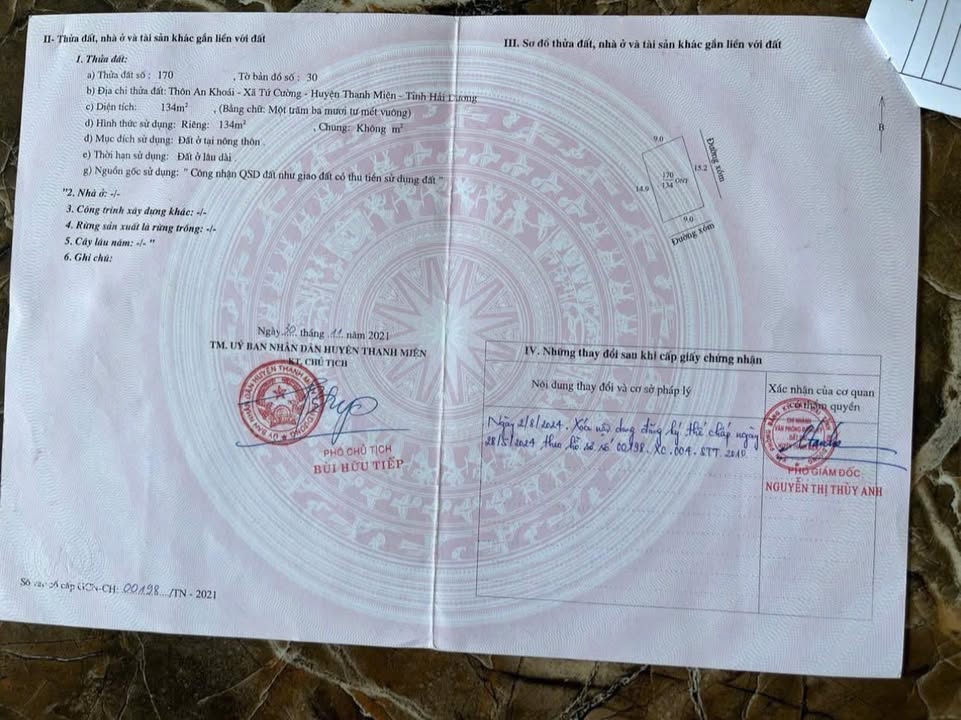 II- Thửa đất, nhà ở và tài sản khác gắn liền với đất
1. Thửa đất:
a) Thửa đất số : 170 , Tờ bản đồ số : 30
b) Địa chỉ thửa đất: Thôn An Khoái - Xã Tứ Cường - Huyện Thanh Miện - Tỉnh Hải Dương
c) Diện tích: 134m² , (Bằng chữ: Một trăm ba mươi tư mét vuông)
d) Hình thức sử dụng: Riêng: 134m² , Chung: Không m²
đ) Mục đích sử dụng: Đất ở tại nông thôn .
e) Thời hạn sử dụng: Đất ở lâu dài .
g) Nguồn gốc sử dụng: " Công nhận QSD đất như giao đất có thu tiền sử dụng đất "
"2. Nhà ở: -/-
3. Công trình xây dựng khác: -/-
4. Rừng sản xuất là rừng trồng: -/-
5. Cây lâu năm: -/- "
6. Ghi chú:
Ngày 30 tháng 11 năm 2021
TM. UỶ BAN NHÂN DÂN HUYỆN THANH MIỆN
KT. CHỦ TỊCH
PHÓ CHỦ TỊCH
BÙI HỮU TIẾP
Số vào sổ cấp GCN-CH: 00198 /TN - 2021
III. Sơ đồ thửa đất, nhà ở và tài sản khác gắn liền với đất
B
9.0
Đường xóm
15.2
14.9
170
134
ONT
9.0
Đường xóm
IV. Những thay đổi sau khi cấp giấy chứng nhận
Nội dung thay đổi và cơ sở pháp lý
Xác nhận của cơ quan
có thẩm quyền
Ngày 2/8/2024. Xóa nội dung đăng ký thế chấp ngày
28/5/2024 theo hồ sơ số 00198.XC.004.
PHÓ GIÁM ĐỐC
NGUYỄN THỊ THÙY ANH